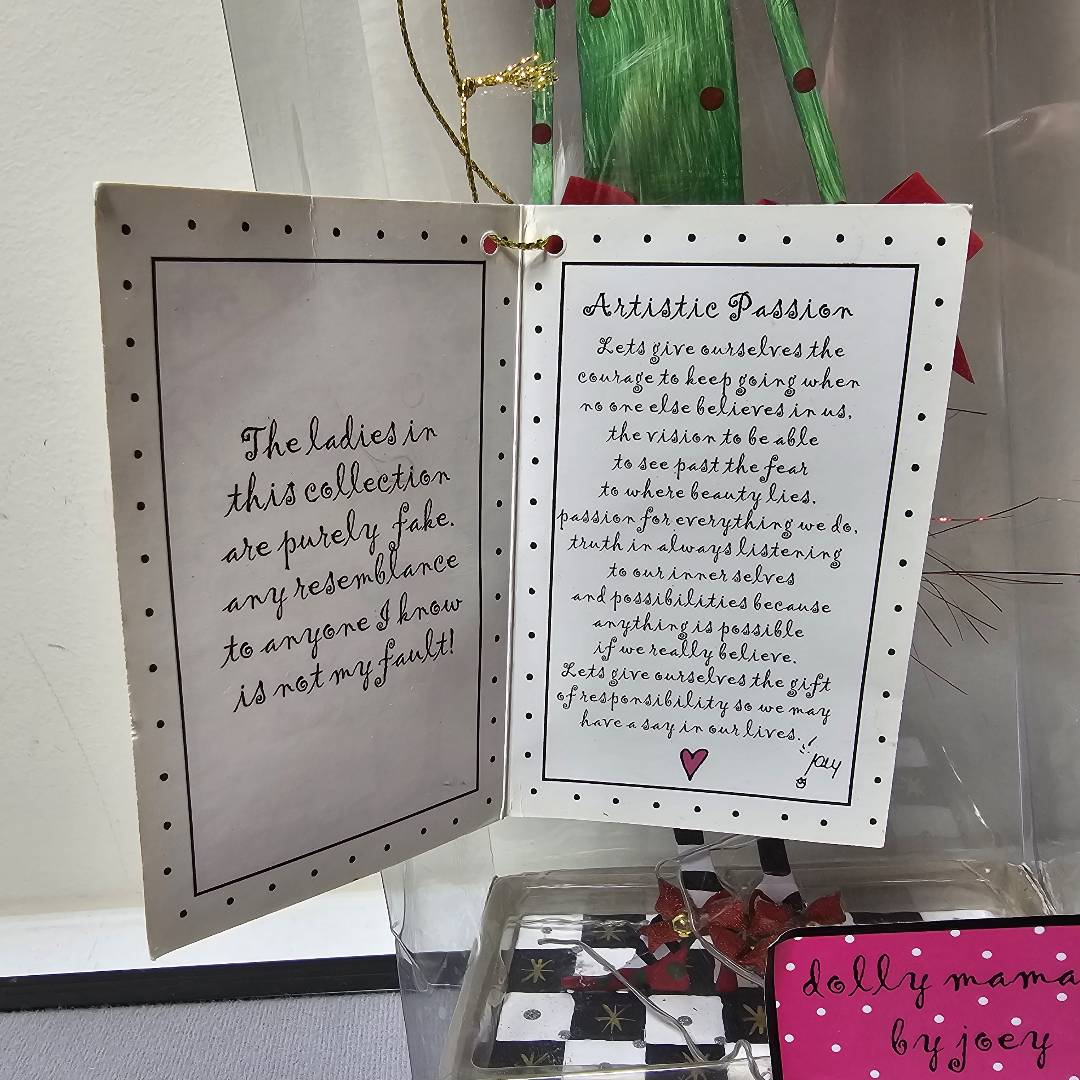 The ladies in
this collection
are purely fake.
any resemblance
to anyone I know
is not my fault!
Artistic Passion
Lets give ourselves the
courage to keep going when
no one else believes in us,
the vision to be able
to see past the fear
to where beauty lies,
passion for everything we do,
truth in always listening
to our inner selves
and possibilities because
anything is possible
if we really believe.
Lets give ourselves the gift
of responsibility so we may
have a say in our lives.
joey
dolly mama
by joey